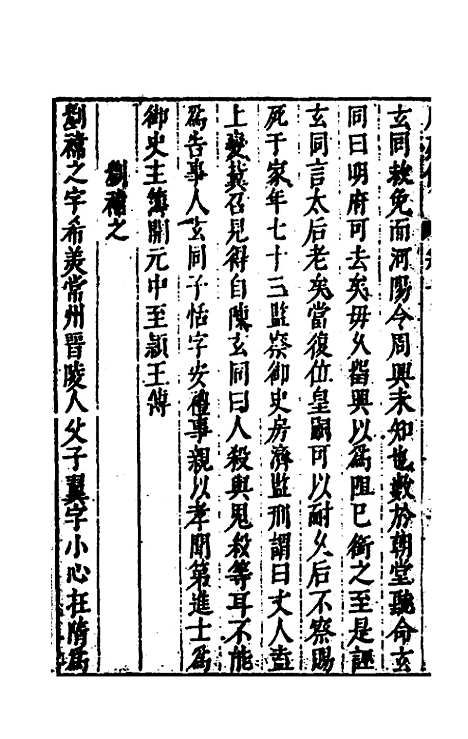 玄同救免而河陽令周興未知也數於朝堂聽命玄
同曰明府可去矣毋久留興以爲阻已銜之至是誣
玄同言太后老矣當復位皇嗣可以耐久后不察賜
死于家年七十三監察御史房濟監刑謂曰丈人盍
上變冀召見得自陳玄同曰人殺與鬼殺等耳不能
爲告事人玄同子恬字安禮事親以孝聞第進士爲
御史主簿開元中至潁王傅
劉禕之
劉禕之字希美常州晉陵人父子翼字小心在隋爲